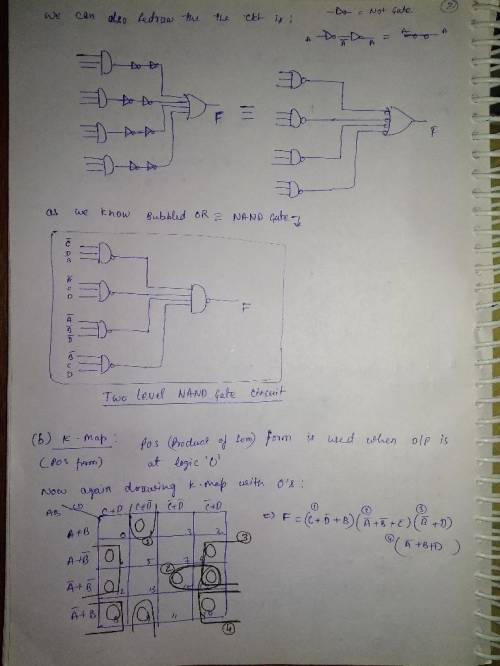 ②
we can also redraw the the ckt is:
-▷o- = Not Gate
A Ā A = A A
F ≡ F
as we know Bubbled OR ≡ NAND Gate
C̄
D
B
C
D
F
Ā
B̄
B̄
C̄
D
Two level NAND Gate circuit
(b) K-Map: POS (Product of Sum) form is used when o/p is
(POS form) at logic '0'
Now again drawing K-Map with 0's:
AB CD C+D C+D̄ C̄+D̄ C̄+D
A+B 0 0 3 2
A+B̄ 0 5 7 0
Ā+B̄ 0 0 0
Ā+B 0 0 11 0
① ② ③ ④
⇒ F = (C+D̄+B) (Ā+B̄+C̄) (D̄+D)
① ② ③
④ (Ā+B+D)